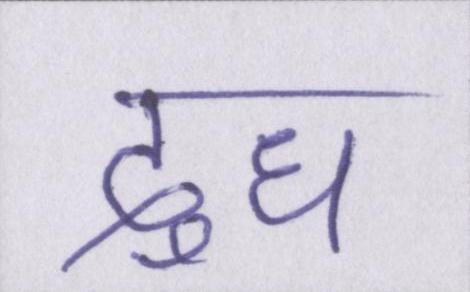 दुध